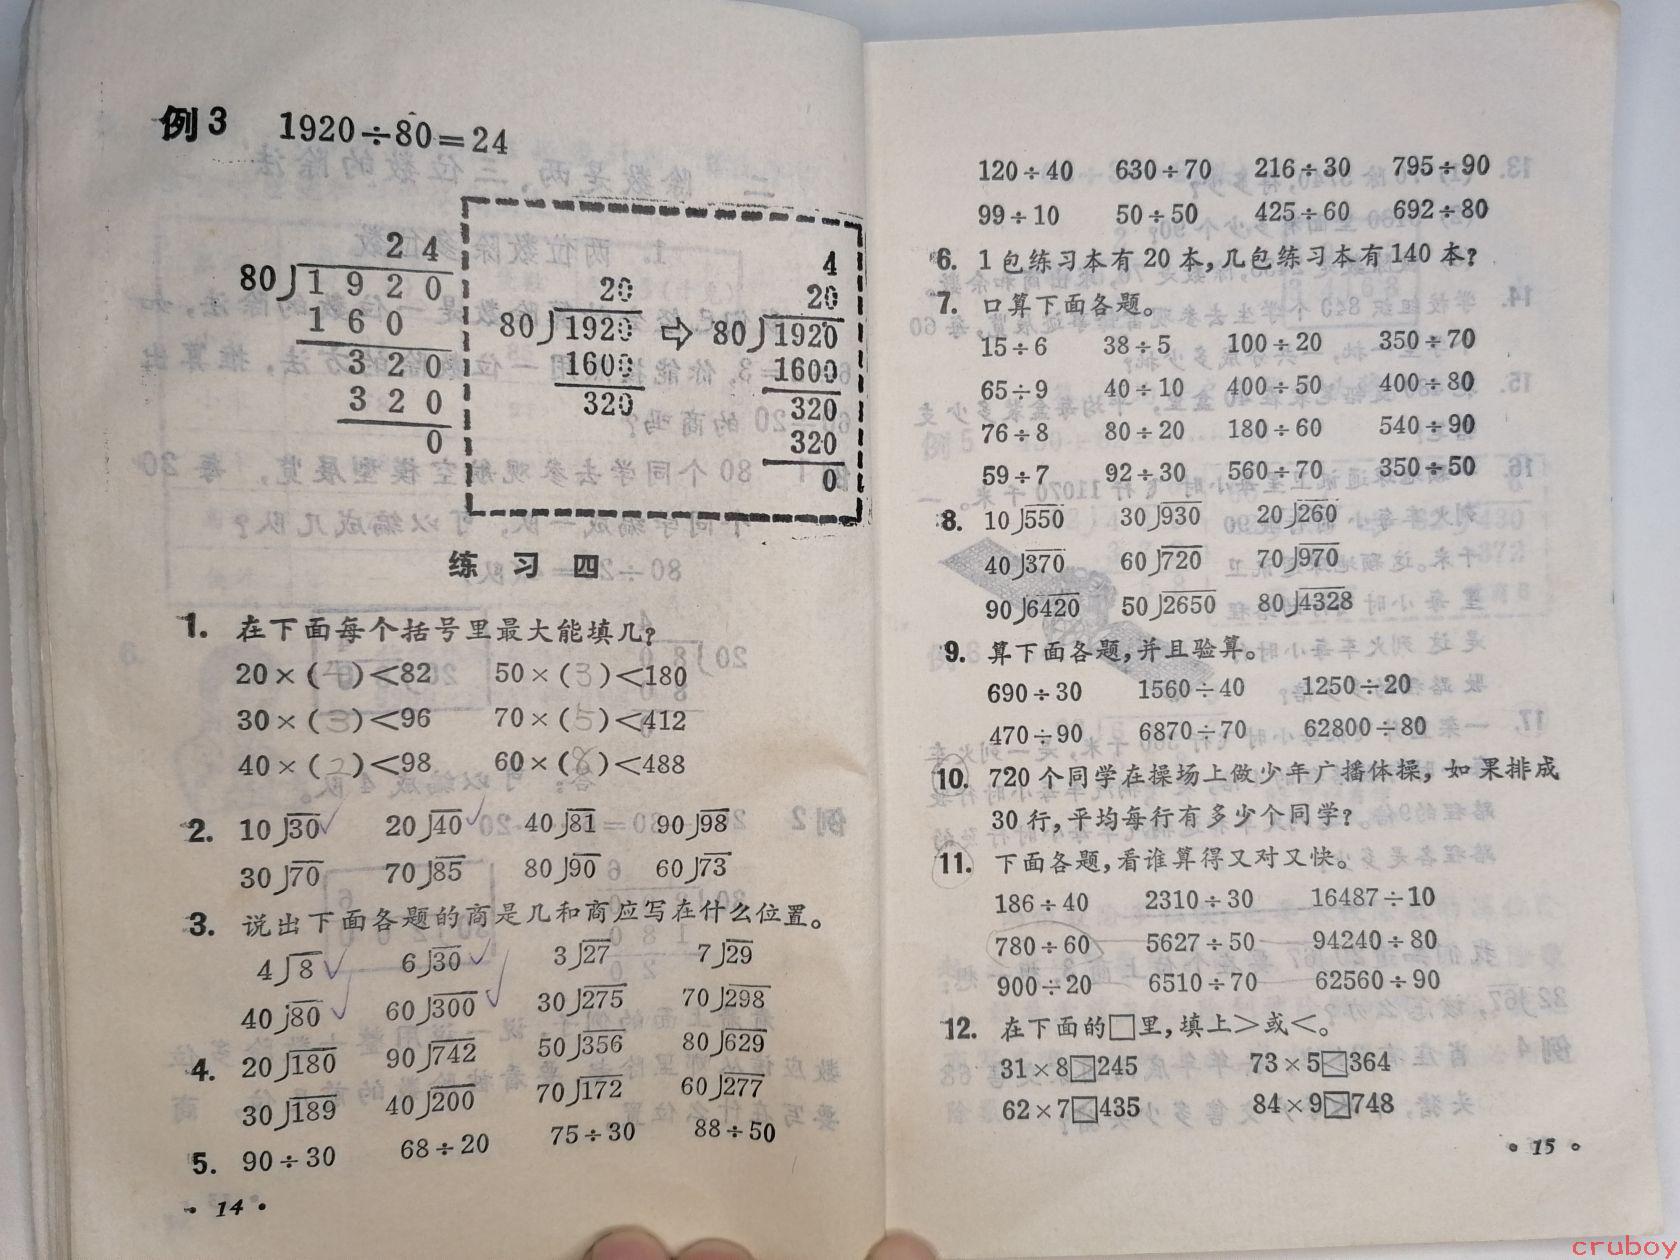 例3 1920÷80=24
24
80)1920
160
320
320
0
20
80)1920
1600
320
⇨
4
20
80)1920
1600
320
320
0
练 习 四
1. 在下面每个括号里最大能填几?
20×(4)<82 50×(3)<180
30×(3)<96 70×(5)<412
40×(2)<98 60×(8)<488
2. 10)30 20)40 40)81 90)98
30)70 70)85 80)90 60)73
3. 说出下面各题的商是几和商应写在什么位置。
4)8 6)30 3)27 7)29
40)80 60)300 30)275 70)298
4. 20)180 90)742 50)356 80)629
30)189 40)200 70)172 60)277
5. 90÷30 68÷20 75÷30 88÷50
·14·
120÷40 630÷70 216÷30 795÷90
99÷10 50÷50 425÷60 692÷80
6. 1包练习本有20本,几包练习本有140本?
7. 口算下面各题。
15÷6 38÷5 100÷20 350÷70
65÷9 40÷10 400÷50 400÷80
76÷8 80÷20 180÷60 540÷90
59÷7 92÷30 560÷70 350÷50
8. 10)550 30)930 20)260
40)370 60)720 70)970
90)6420 50)2650 80)4328
9. 算下面各题,并且验算。
690÷30 1560÷40 1250÷20
470÷90 6870÷70 62800÷80
10. 720个同学在操场上做少年广播体操,如果排成
30行,平均每行有多少个同学?
11. 下面各题,看谁算得又对又快。
186÷40 2310÷30 16487÷10
780÷60 5627÷50 94240÷80
900÷20 6510÷70 62560÷90
12. 在下面的□里,填上>或<。
31×8□245 73×5□364
62×7□435 84×9□748
·15·
cruboy